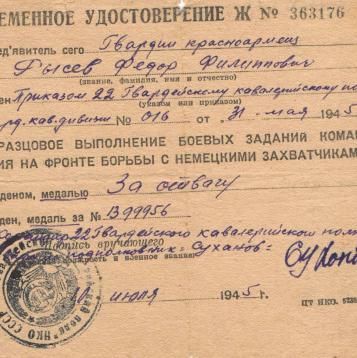 ЕМЕННОЕ УДОСТОВЕРЕНИЕ Ж № 363176
ед'явитель сего Гвардии красноармеец
Рысев Федор Филиппович
(звание, фамилия, имя и отчество)
ен Приказом 22 Гвардейскому кавалерийскому по
(указом или приказом)
рд. кав. дивизии № 016 от „31“ мая 1945
РАЗЦОВОЕ ВЫПОЛНЕНИЕ БОЕВЫХ ЗАДАНИЙ КОМАН
ИЯ НА ФРОНТЕ БОРЬБЫ С НЕМЕЦКИМИ ЗАХВАТЧИКАМ
деном, медалью За отвагу
ден, медаль за № В99956
22 Гвардейского кавалерийского полк
Подпись вручающего
подполковник - Суханов -
должность и военное звание)
июля 1945 г.
ЦТ НКО.